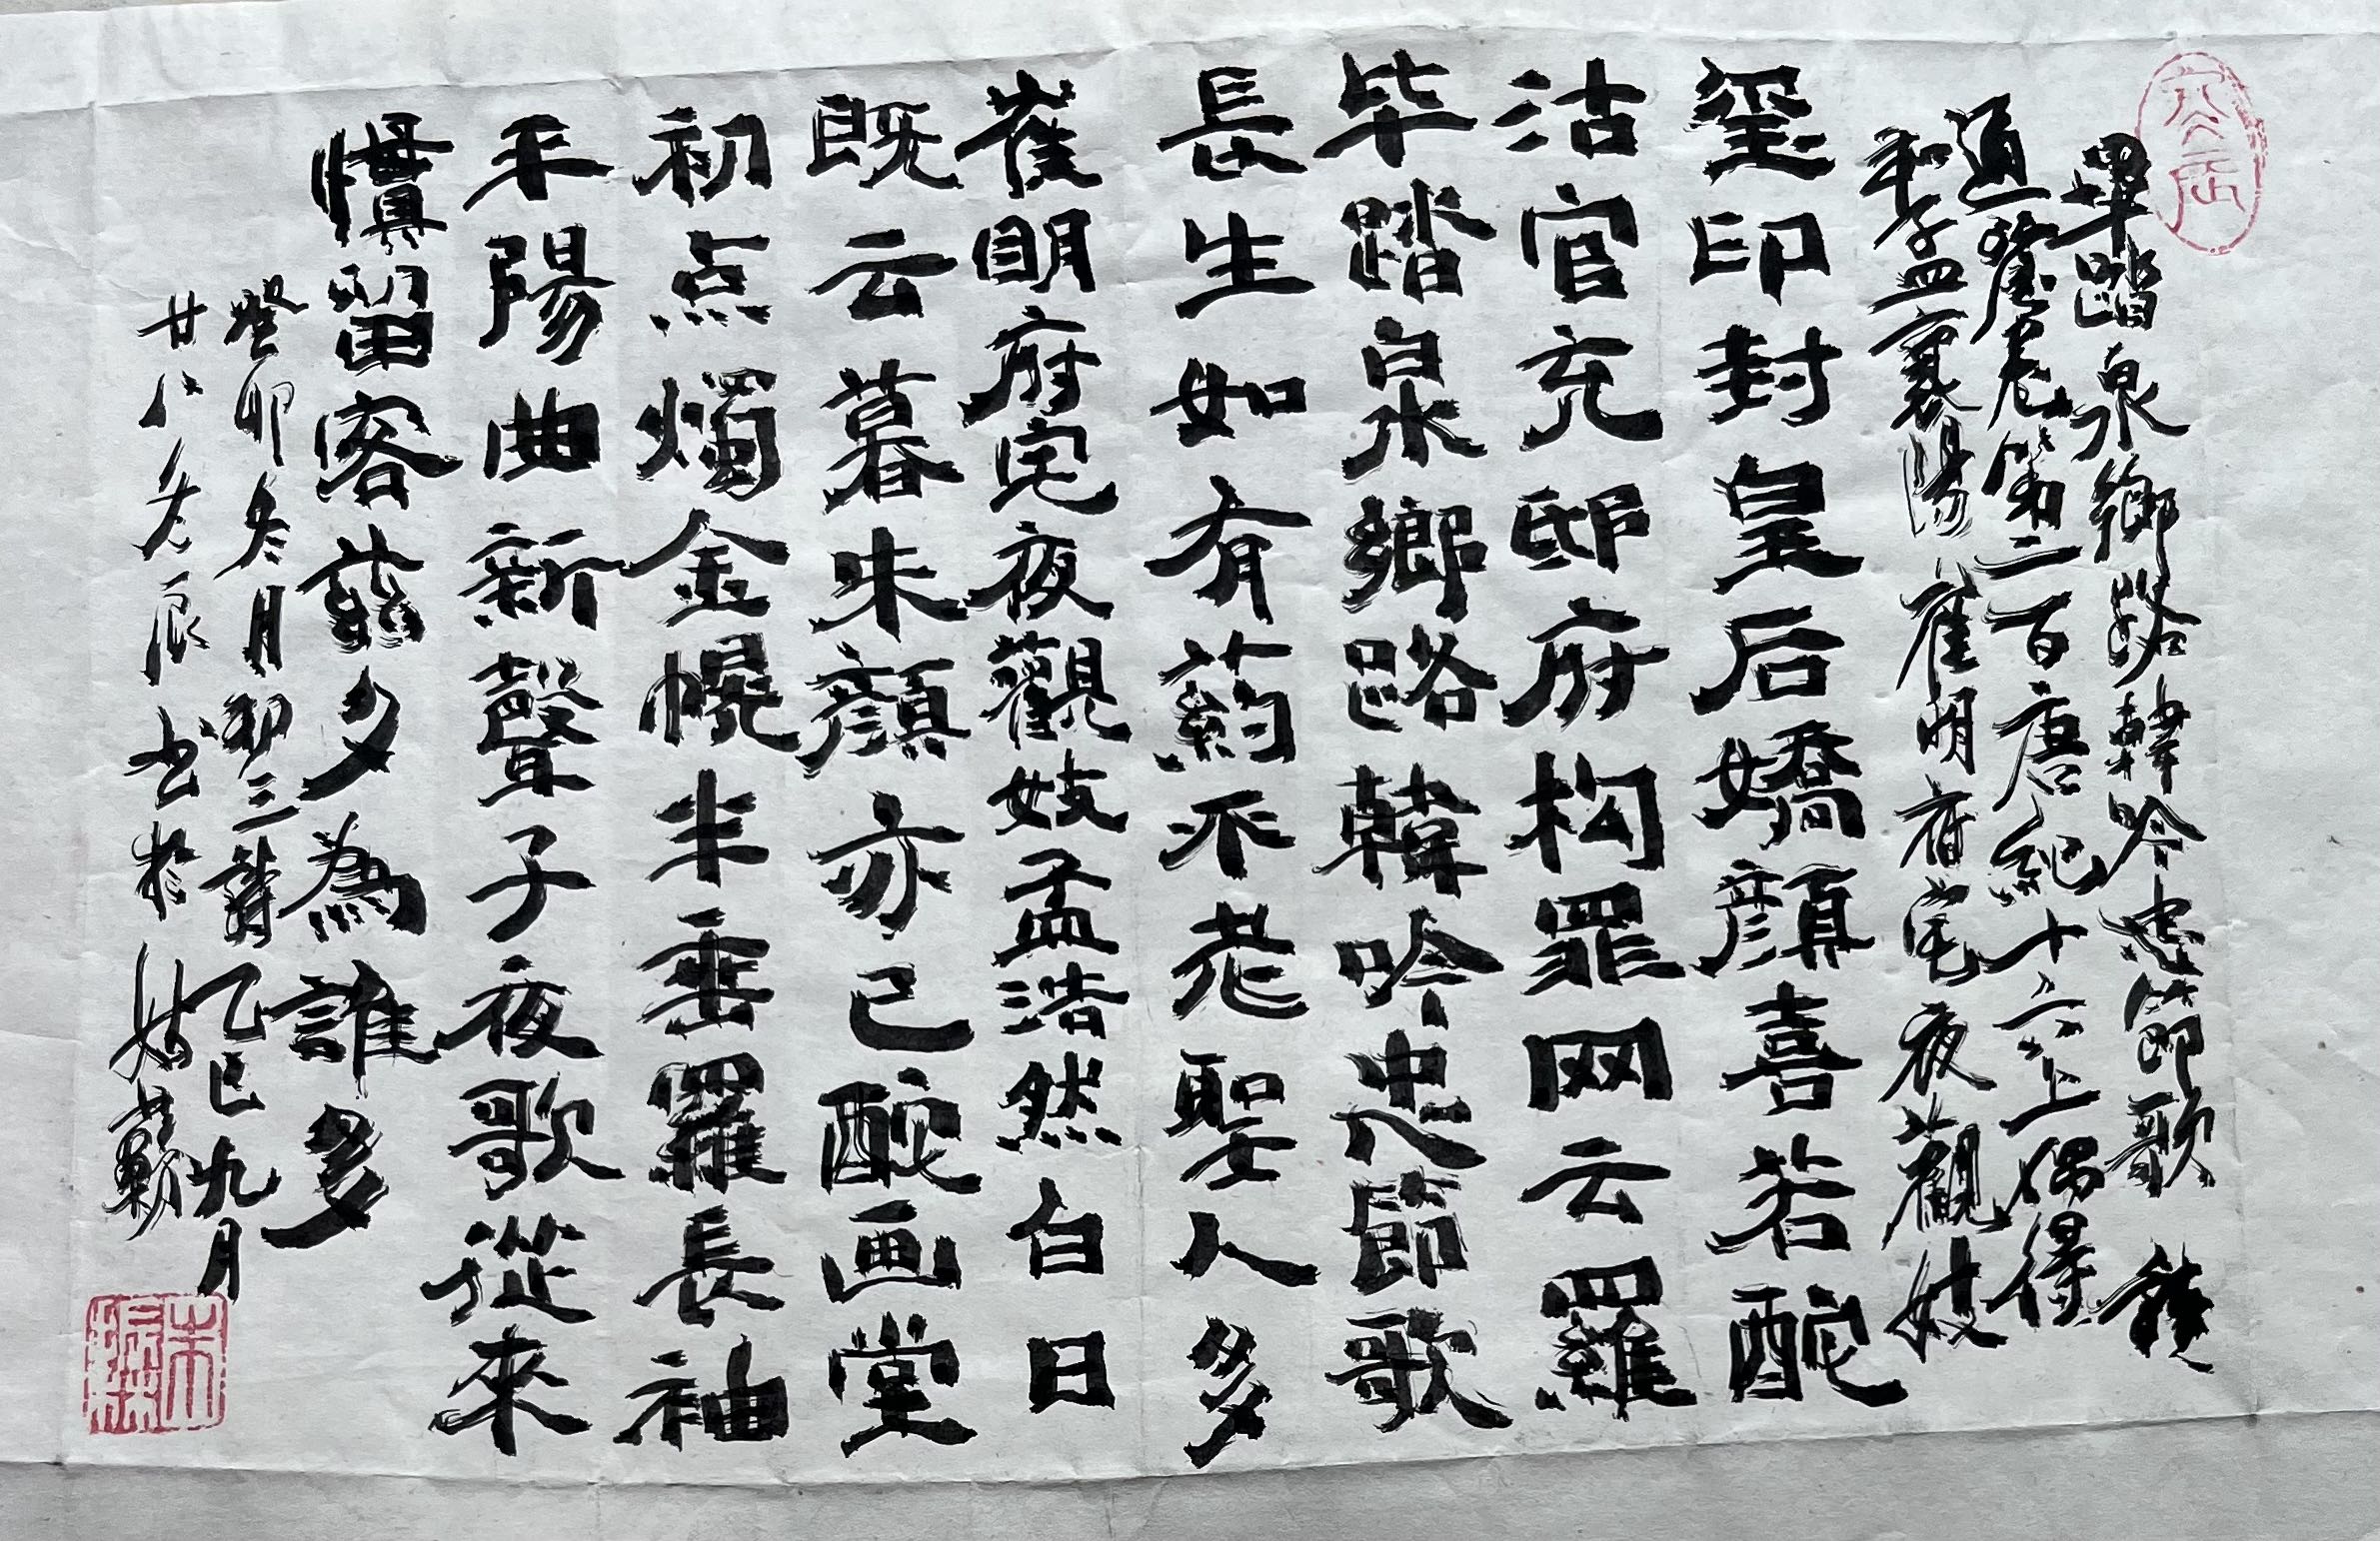 畢踏泉鄉路韓吟忠節歌 讀
通鑒卷第二百唐紀十六上偶得
和孟襄陽崔明府宅夜觀妓
璽印封皇后嬌顔喜若酡
沽官充邸府构罪网云羅
毕踏泉鄉路韓吟忠節歌
長生如有葯不老聖人多
崔明府宅夜觀妓孟浩然白日
既云暮朱顔亦已酡画堂
初点燭金幌半垂羅長袖
平陽曲新聲子夜歌從來
慣留客兹夕為誰多
癸卯冬月初三 乙巳九月
廿八 書於姑蘇